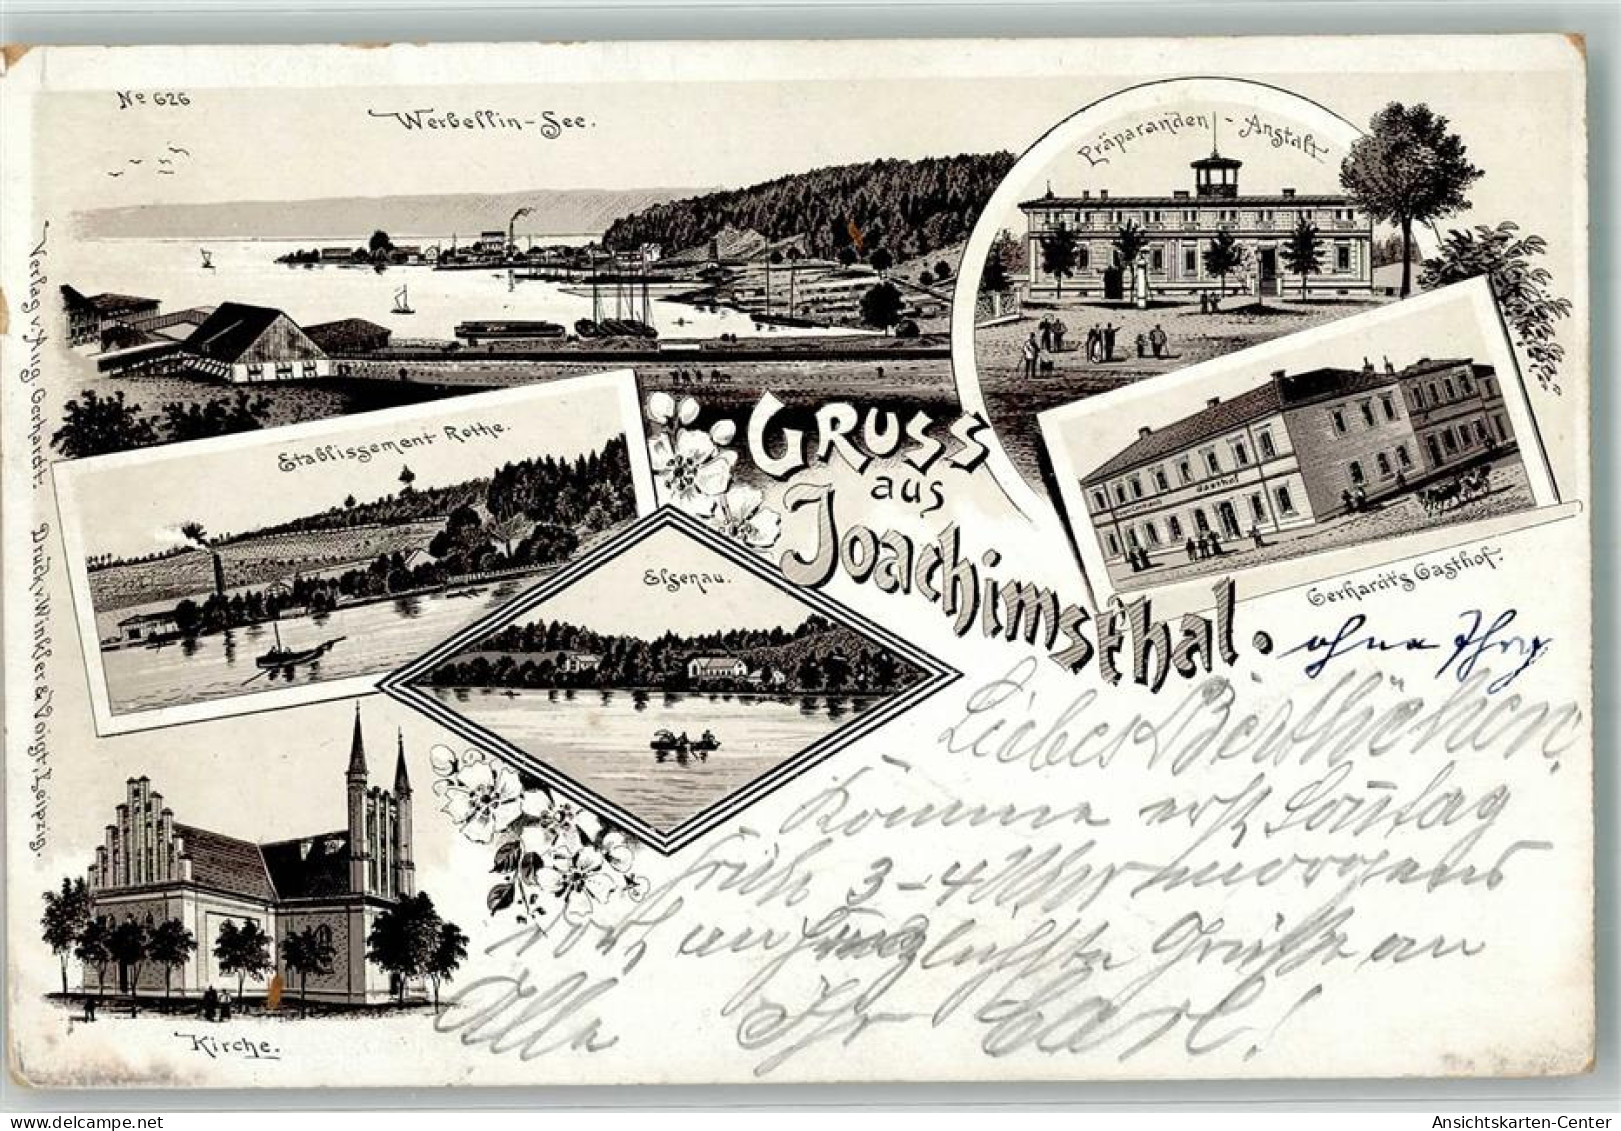 No 626
Werbellin-See.
Präparanden-Anstalt
Etablissement Rothe.
GRUSS
aus
Joachimsthal.
Gasthof
Gerhardt's Gasthof.
Elsenau.
Kirche.
Verlag v. Aug. Gerhardt. Druck v. Winkler & Voigt, Leipzig.
ohne
Liebes
Komme erst Sonntag
früh 3-4 Uhr morgens
dort an herzlichste Grüße an
Alle Ihr Carl!
Ansichtskarten-Center